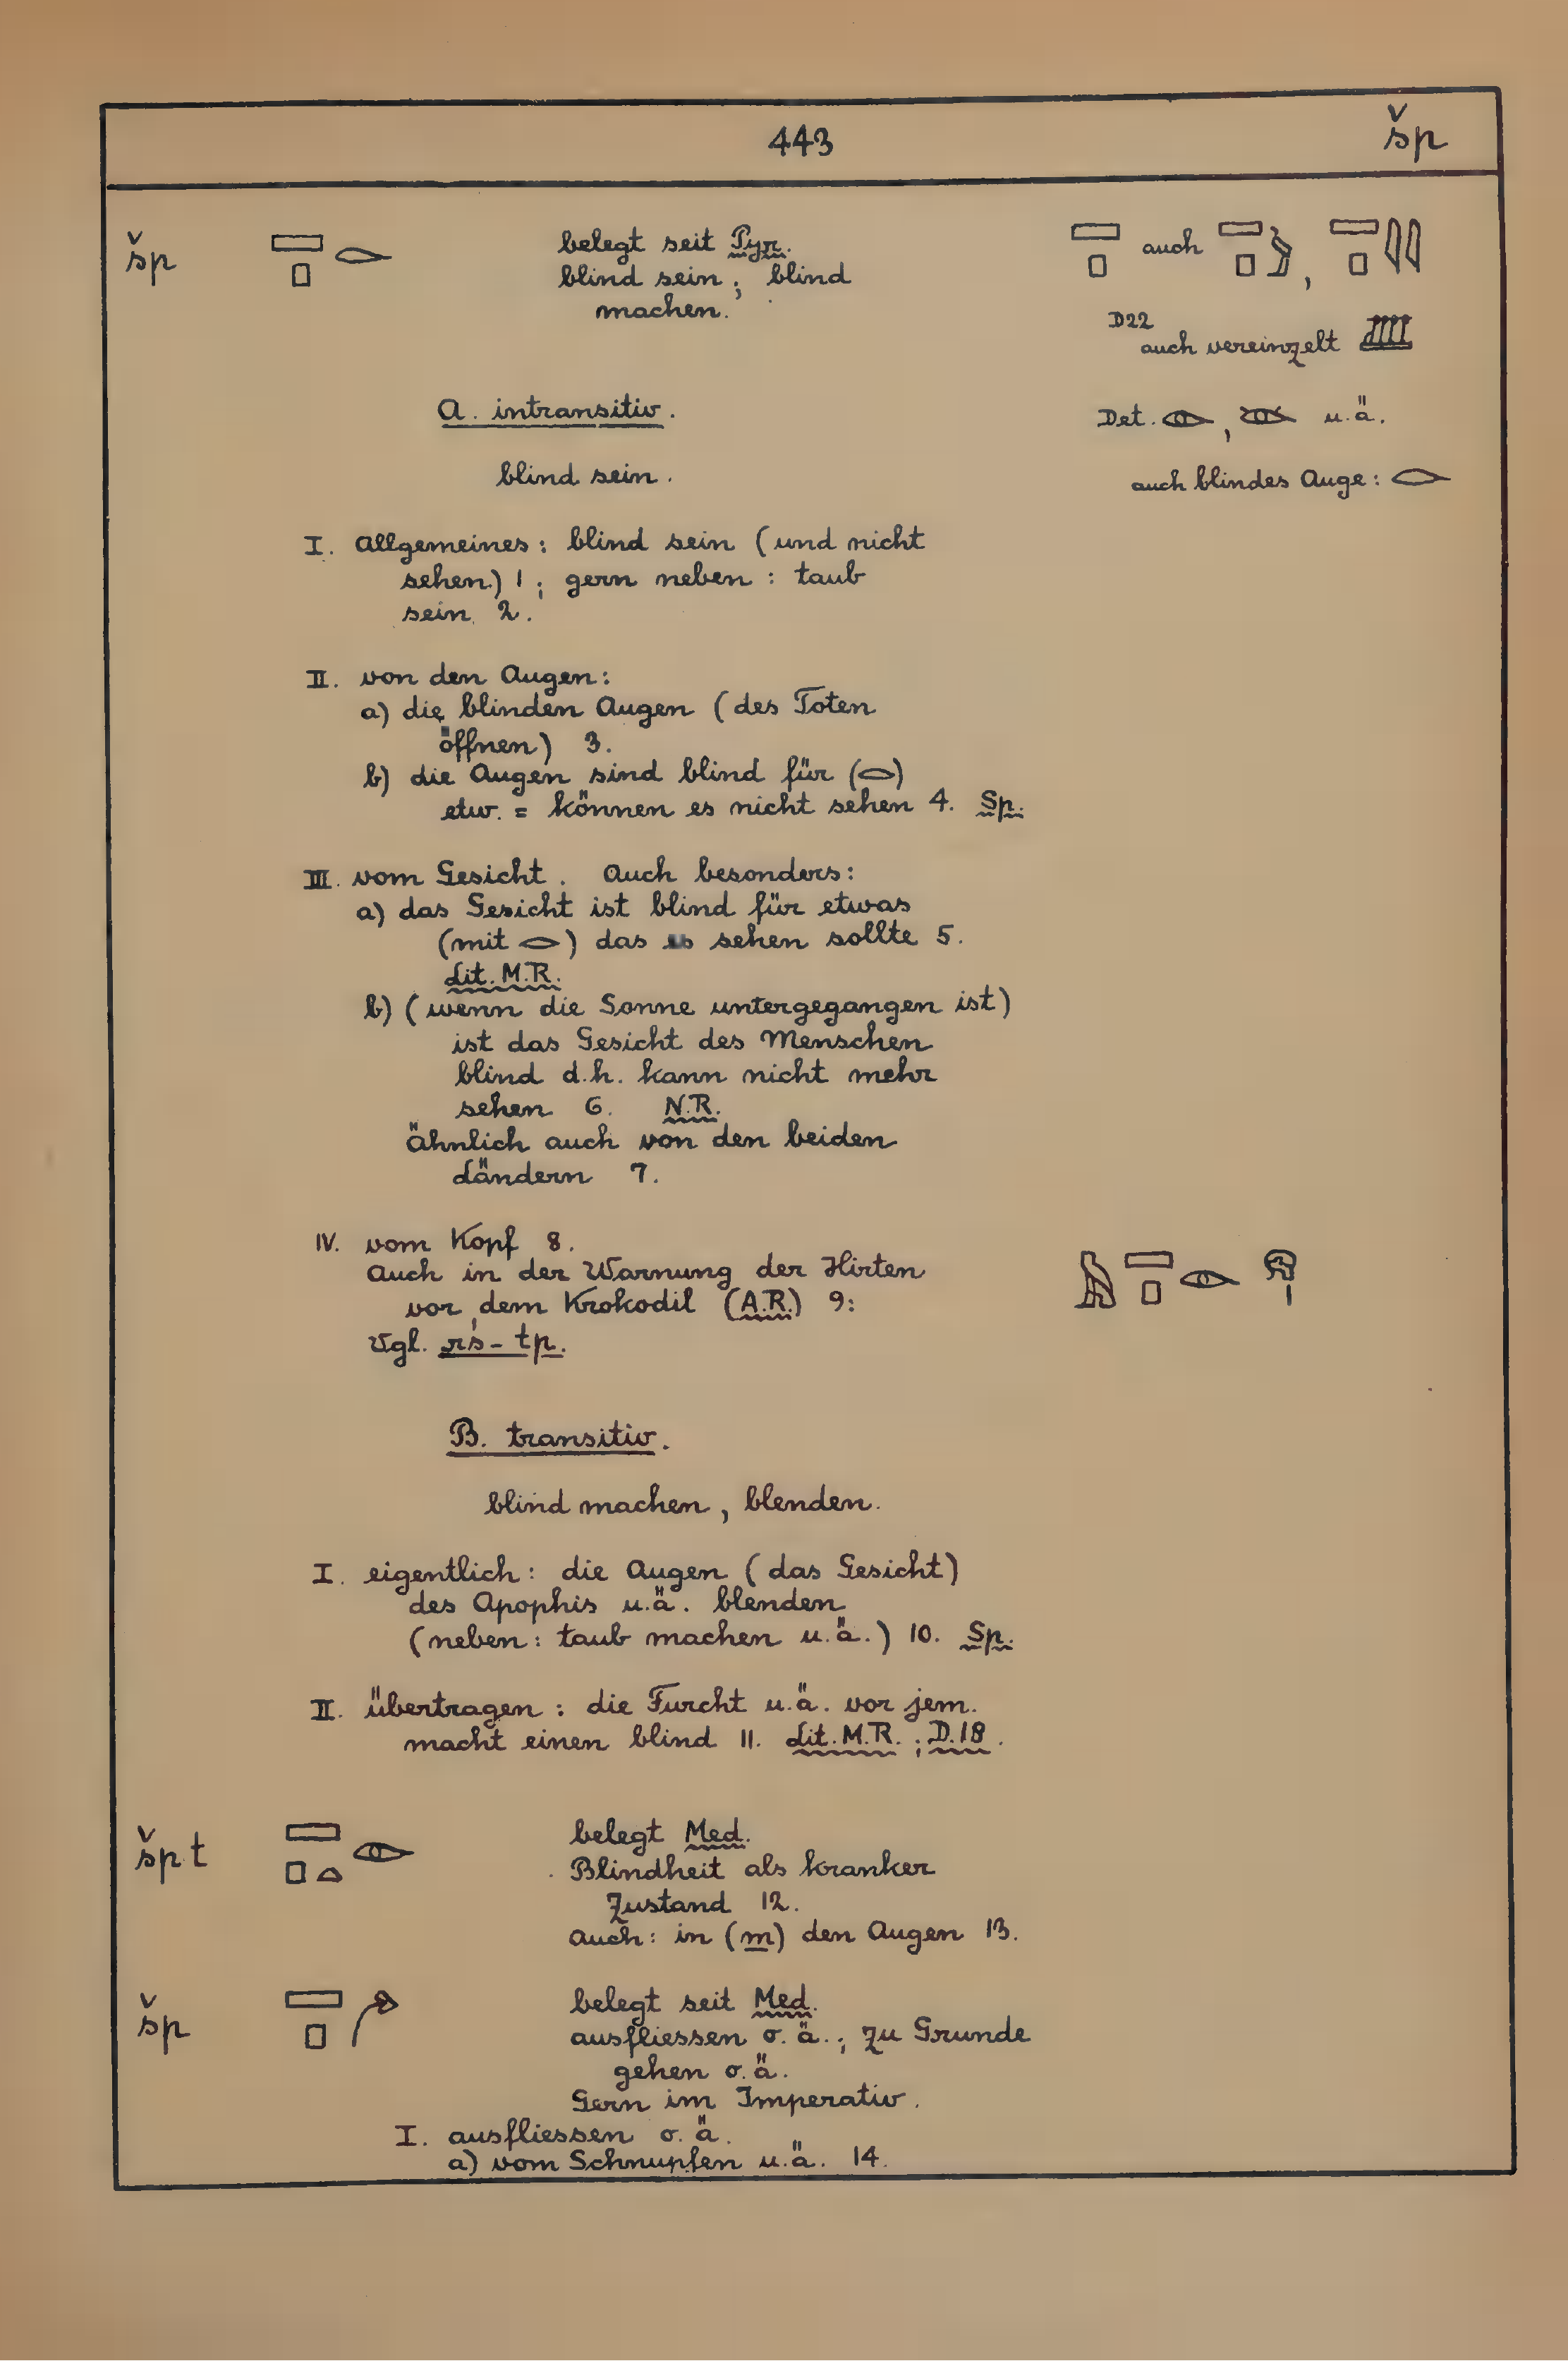 443 šp
šp belegt seit Pyr.
blind sein; blind
machen.
auch ,
D22
auch vereinzelt
A. intransitiv.
Det. , u.ä.
blind sein.
auch blindes Auge:
I. Allgemeines: blind sein (und nicht
sehen) 1; gern neben: taub
sein 2.
II. von den Augen:
a) die blinden Augen (des Toten
öffnen) 3.
b) die Augen sind blind für (𓂋)
etw. = können es nicht sehen 4. Sp.
III. vom Gesicht. Auch besonders:
a) das Gesicht ist blind für etwas
(mit 𓂋) das es sehen sollte 5.
Lit. M.R.
b) (wenn die Sonne untergegangen ist)
ist das Gesicht des Menschen
blind d.h. kann nicht mehr
sehen 6. N.R.
Ähnlich auch von den beiden
Ländern 7.
IV. vom Kopf 8.
Auch in der Warnung der Hirten
vor dem Krokodil (A.R.) 9:
Vgl. rś-tp.
B. transitiv.
blind machen, blenden.
I. eigentlich: die Augen (das Gesicht)
des Apophis u.ä. blenden
(neben: taub machen u.ä.) 10. Sp.
II. übertragen: die Furcht u.ä. vor jem.
macht einen blind 11. Lit. M.R.; D.18.
špt belegt Med.
Blindheit als kranker
Zustand 12.
Auch: in (m) den Augen 13.
šp belegt seit Med.
ausfliessen o.ä.; zu Grunde
gehen o.ä.
Gern im Imperativ.
I. ausfliessen o.ä.
a) vom Schnupfen u.ä. 14.